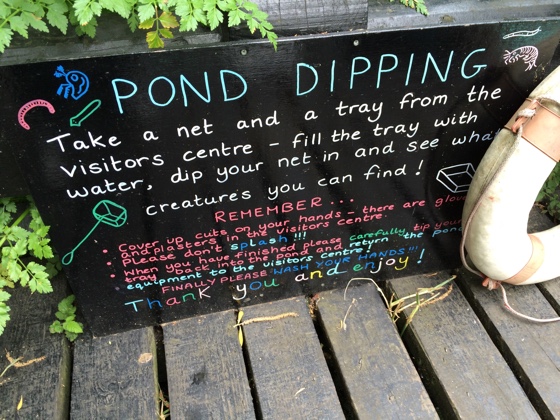 POND DIPPING
Take a net and a tray from the
visitors centre - fill the tray with
water, dip your net in and see what
creatures you can find!
REMEMBER...
• Cover up cuts on your hands - there are
and plasters in the visitors centre.
• Please don't splash!!!
• When you have finished please carefully tip your
tray back into the pond and return the pond
equipment to the visitors centre!
FINALLY PLEASE WASH YOUR HANDS!!!
Thank you and enjoy!